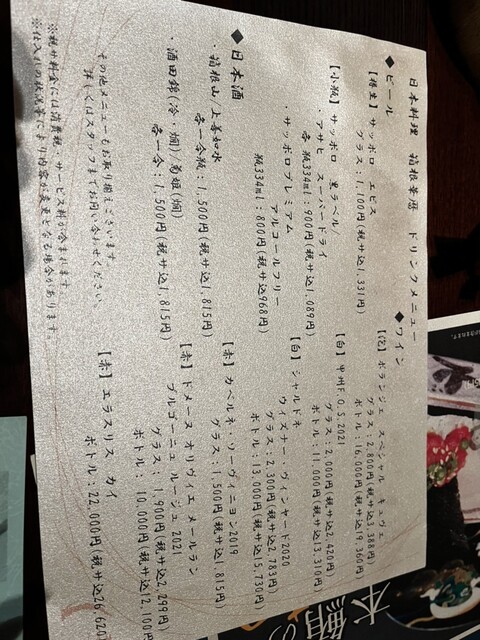 日本料理 箱根華暦 ドリンクメニュー
◆ビール
【樽生】サッポロ エビス
グラス：1,100円(税サ込1,331円)
【小瓶】サッポロ 黒ラベル/
・アサヒ スーパードライ
各 瓶334ml：900円(税サ込1,089円)
・サッポロプレミアム
アルコールフリー
瓶334ml：800円(税サ込968円)
◆日本酒
・箱根山/上善如水
各一合瓶：1,500円(税サ込1,815円)
・酒田錦(冷・燗)/菊姫(燗)
各一合：1,500円(税サ込1,815円)
その他メニューもお取り揃えございます。
詳しくはスタッフまでお問い合わせください。
※税サ料金には消費税・サービス料が含まれます。
※仕入れの状況等により内容が変更となる場合があります。
◆ワイン
【泡】ボランジェ スペシャル キュヴェ
グラス：2,800円(税サ込3,388円)
ボトル：16,000円(税サ込19,360円)
【白】甲州F.O.S.2021
グラス：2,000円(税サ込2,420円)
ボトル：11,000円(税サ込13,310円)
【白】シャルドネ
ウィスナー・ヴィンヤード2020
グラス：2,300円(税サ込2,783円)
ボトル：13,000円(税サ込15,730円)
【赤】カベルネ・ソーヴィニヨン2019
グラス：1,500円(税サ込1,815円)
【赤】ドメーヌ オリヴィエ メールラン
ブルゴーニュ ルージュ 2021
グラス：1,900円(税サ込2,299円)
ボトル：10,000円(税サ込12,100円
【赤】エラスリス カイ
ボトル：22,000円(税サ込26,620
本鮪の